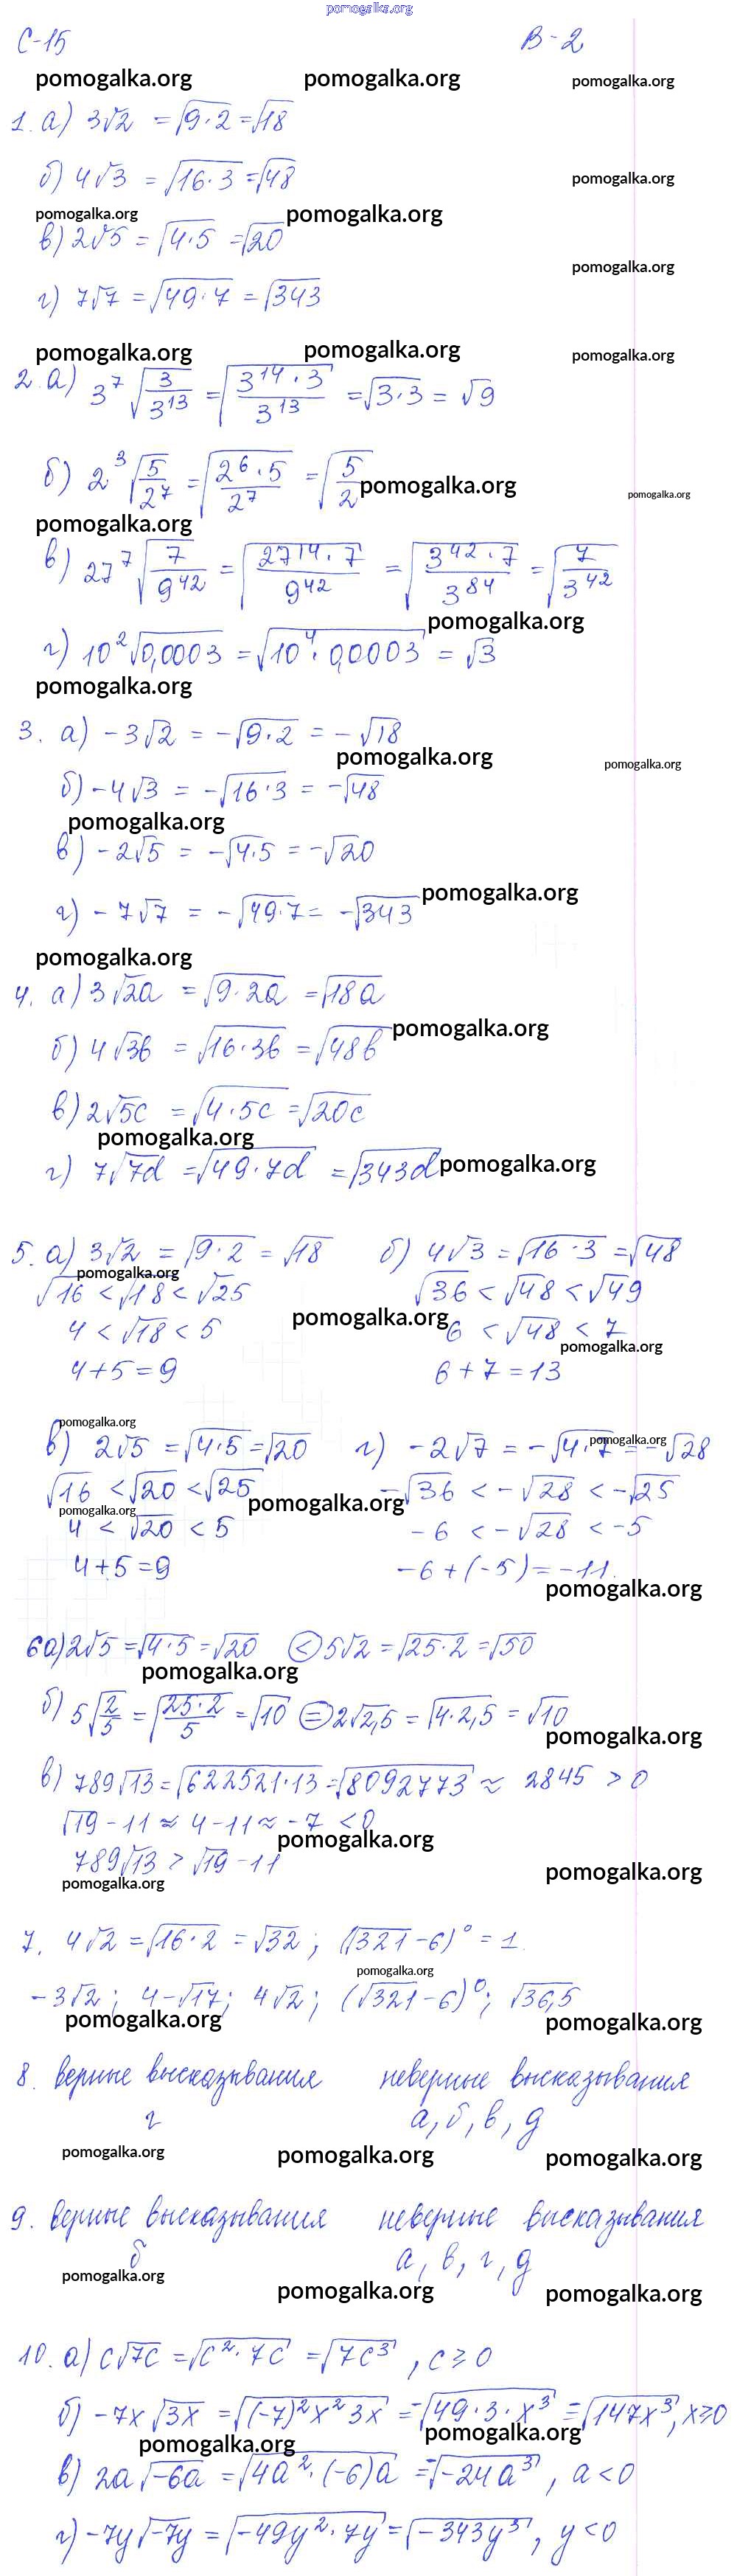 pomogalka.org
С-15 В-2
pomogalka.org pomogalka.org pomogalka.org
1. а) 3√2 = √(9·2) = √18
б) 4√3 = √(16·3) = √48
pomogalka.org
pomogalka.org pomogalka.org
в) 2√5 = √(4·5) = √20
pomogalka.org
г) 7√7 = √(49·7) = √343
pomogalka.org pomogalka.org pomogalka.org
2. а) 3⁷√(3/3¹³) = √(3¹⁴·3/3¹³) = √(3·3) = √9
б) 2³√(5/2⁷) = √(2⁶·5/2⁷) = √(5/2)
pomogalka.org pomogalka.org
pomogalka.org
в) 27⁷√(7/9⁴²) = √(27¹⁴·7/9⁴²) = √(3⁴²·7/3⁸⁴) = √(7/3⁴²)
pomogalka.org
г) 10²√0,0003 = √(10⁴·0,0003) = √3
pomogalka.org
3. а) -3√2 = -√(9·2) = -√18
pomogalka.org pomogalka.org
б) -4√3 = -√(16·3) = -√48
pomogalka.org
в) -2√5 = -√(4·5) = -√20
г) -7√7 = -√(49·7) = -√343
pomogalka.org
pomogalka.org
4. а) 3√2a = √(9·2a) = √18a
б) 4√3b = √(16·3b) = √48b
pomogalka.org
в) 2√5c = √(4·5c) = √20c
pomogalka.org
г) 7√7d = √(49·7d) = √343d
pomogalka.org
5. а) 3√2 = √(9·2) = √18 б) 4√3 = √(16·3) = √48
pomogalka.org
√16 < √18 < √25 √36 < √48 < √49
pomogalka.org
4 < √18 < 5 6 < √48 < 7
pomogalka.org
4+5=9 6+7=13
pomogalka.org
в) 2√5 = √(4·5) = √20 г) -2√7 = -√(4·7) = -√28
pomogalka.org
√16 < √20 < √25 -√36 < -√28 < -√25
pomogalka.org pomogalka.org
4 < √20 < 5 -6 < -√28 < -5
4+5=9 -6+(-5)=-11.
pomogalka.org
6а) 2√5 = √(4·5) = √20 < 5√2 = √(25·2) = √50
pomogalka.org
б) 5√(2/5) = √(25·2/5) = √10 = 2√2,5 = √(4·2,5) = √10
pomogalka.org
в) 789√13 = √(622521·13) = √8092773 ≈ 2845 > 0
√19-11 ≈ 4-11 ≈ -7 < 0
pomogalka.org
789√13 > √19-11
pomogalka.org pomogalka.org
7. 4√2 = √(16·2) = √32; (√321-6)⁰ = 1.
pomogalka.org
-3√2; 4-√17; 4√2; (√321-6)⁰; √36,5
pomogalka.org pomogalka.org
8. верные высказывания неверные высказывания
г а, б, в, д
pomogalka.org pomogalka.org pomogalka.org
9. верные высказывания неверные высказывания
б а, в, г, д
pomogalka.org pomogalka.org pomogalka.org
10. а) c√7c = √(c²·7c) = √7c³, c⩾0
б) -7x√3x = √((-7)²x²3x) = -√(49·3·x³) = -√147x³, x⩾0
pomogalka.org pomogalka.org
в) 2a√-6a = √(4a²·(-6)a) = -√-24a³, a<0
г) -7y√-7y = √(-49y²·7y) = √-343y³, y<0